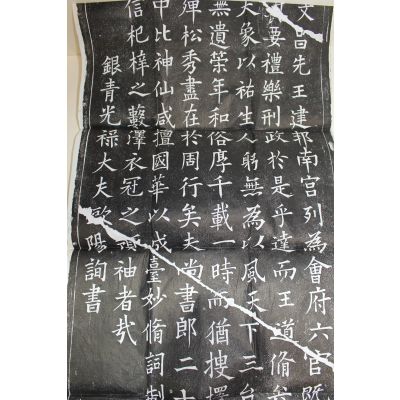 文昌先王建邦南宫列為會府六官既
要禮樂刑政於是乎達而王道備矣
大象以祐生人躬無為以風天下三台
無遺榮年和俗厚千載一時而猶搜擇
殫松秀盡在於周行矣夫尚書郎二十
中比神仙咸擅國華以成臺妙脩詞制
信杞梓之藪澤衣冠之領袖者哉
銀青光祿大夫歐陽詢書